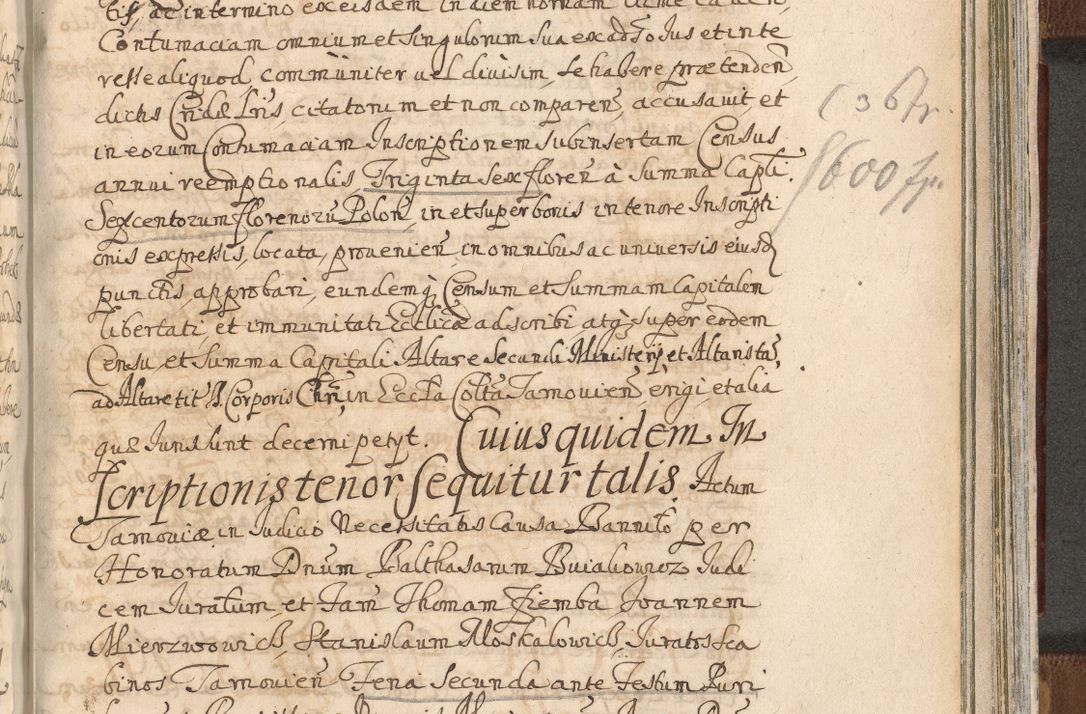 Contumaciam omnium et singulorum sua ex ad jo Jus et inte
resse aliquod, communiter vel divisim, se habere prætenden̄,
dictis Cridæ Lr̄is, citatorum et non comparen̄, accusavit, et
in eorum Contumaciam Inscriptionem subinsertam Census
annui reemptionalis, Triginta sex floren̄ à Summa Capli.
Sexcentorum florenorū Polon̄, in et super bonis in tenore Inscripti
onis expressis, locata, provenien̄, in omnibus ac universis eiusd̄
punctis, approbari, eundemq; Censum et Summam Capitalem
libertati, et immunitati Ecclicæ adscribi, atq; super eodem
Censu, et Summa Capitali Altare Secundi Ministerij et Altaristā,
ad Altare tit: S. Corporis Chrī, in Eccła Colłta Tarnovien̄ erigi, et alia
quæ Juris sunt decerni petyt. Cuius quidem In
scriptionis tenor sequitur talis. Actum
Tarnoviæ in Judicio Necessitatis Causa Bannito per
Honoratum Dnūm Balthasarum Buialiowicz Judi
cem Juratum, et Fam̄ Thomam Ziemba, Joannem
Mierzwowicz, Stanislaum Moskalowicz, Juratos Sca
binos Tarnovien̄ Feria Secunda ante Festum Puri
36 fr.
600 fr.